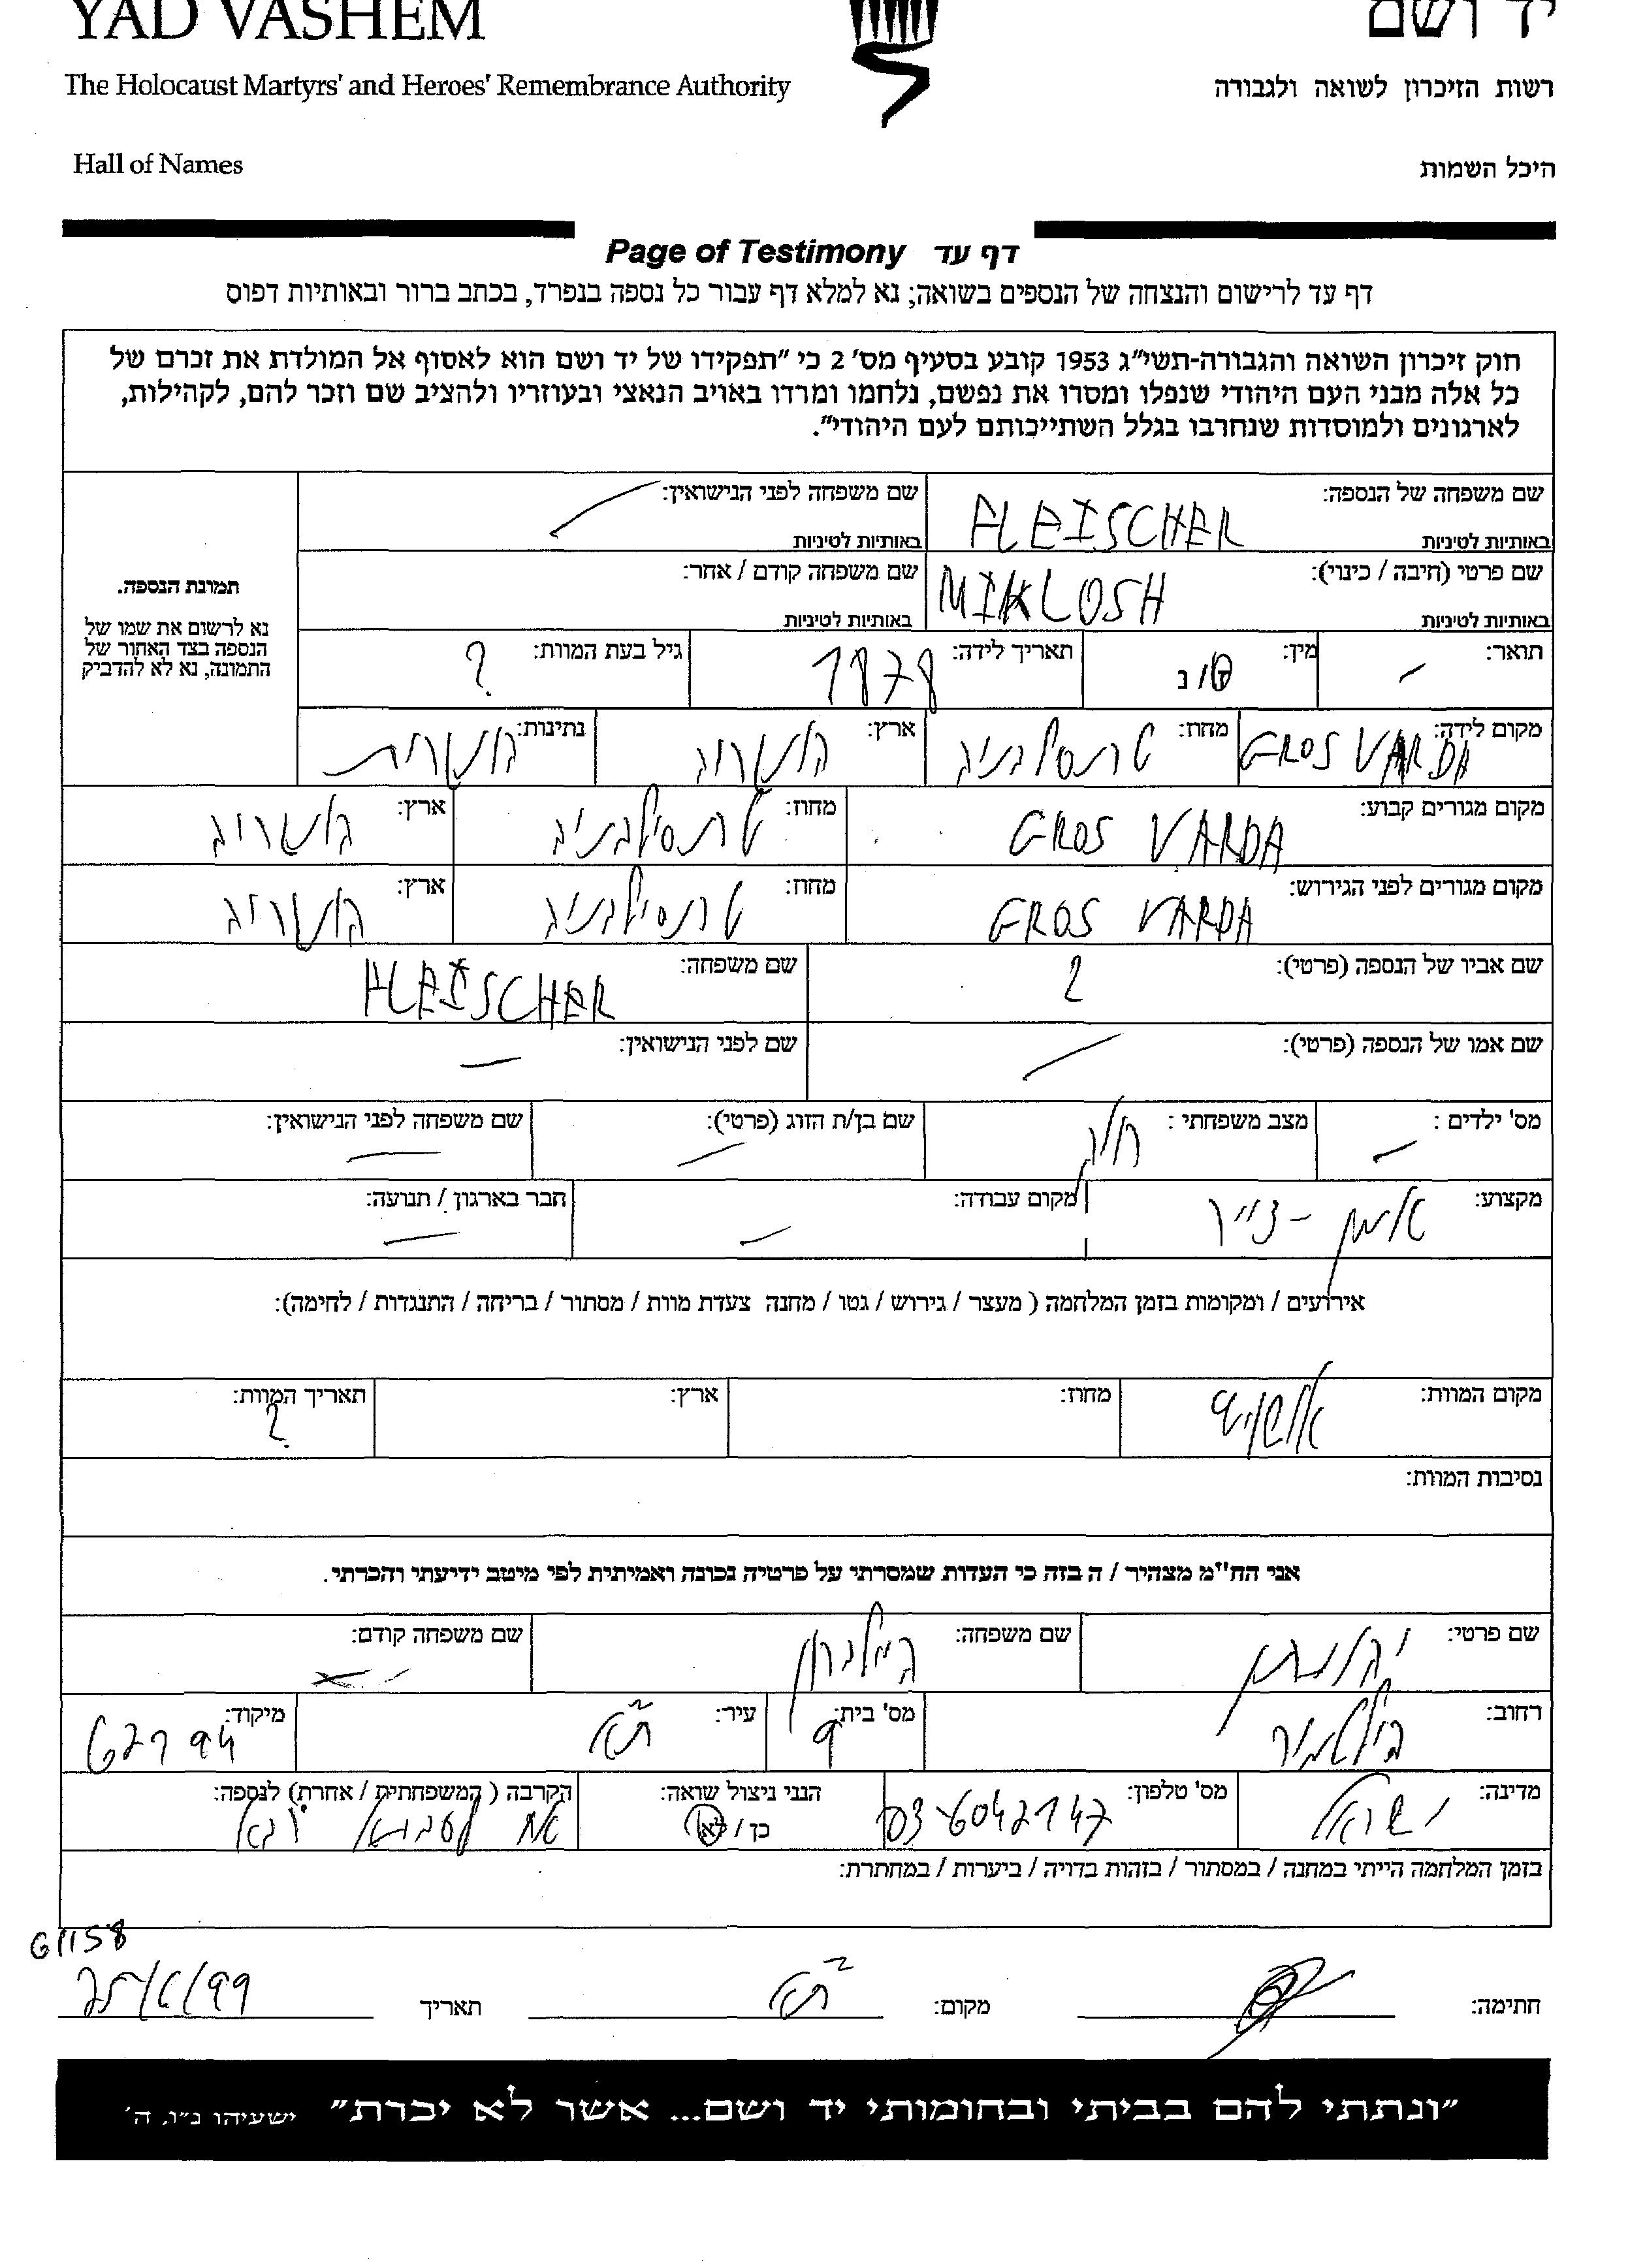 YAD VASHEM יד ושם
The Holocaust Martyrs' and Heroes' Remembrance Authority רשות הזיכרון לשואה ולגבורה
Hall of Names היכל השמות
Page of Testimony דף עד
דף עד לרישום והנצחה של הנספים בשואה; נא למלא דף עבור כל נספה בנפרד, בכתב ברור ובאותיות דפוס
חוק זיכרון השואה והגבורה-תשי"ג 1953 קובע בסעיף מס' 2 כי "תפקידו של יד ושם הוא לאסוף אל המולדת את זכרם של
כל אלה מבני העם היהודי שנפלו ומסרו את נפשם, נלחמו ומרדו באויב הנאצי ובעוזריו ולהציב שם וזכר להם, לקהילות,
לארגונים ולמוסדות שנחרבו בגלל השתייכותם לעם היהודי".
שם משפחה של הנספה: FLEISCHER שם משפחה לפני הנישואין:
באותיות לטיניות באותיות לטיניות
שם פרטי (חיבה / כינוי): MIKLOSH שם משפחה קודם / אחר:
באותיות לטיניות באותיות לטיניות
תמונת הנספה.
נא לרשום את שמו של
הנספה בצד האחור של
התמונה, נא לא להדביק
תואר: - מין: ז / נ תאריך לידה: 1878 גיל בעת המוות: ?
מקום לידה: GROS VARDA מחוז: טרנסילבניה ארץ: הונגריה נתינות: הונגרית
מקום מגורים קבוע: GROS VARDA מחוז: טרנסילבניה ארץ: הונגריה
מקום מגורים לפני הגירוש: GROS VARDA מחוז: טרנסילבניה ארץ: הונגריה
שם אביו של הנספה (פרטי): ? שם משפחה: FLEISCHER
שם אמו של הנספה (פרטי): שם לפני הנישואין: -
מס' ילדים : - מצב משפחתי : שם בן/ת הזוג (פרטי): - שם משפחה לפני הנישואין: -
מקצוע: אמן - צייר מקום עבודה: - חבר בארגון / תנועה: -
אירועים / ומקומות בזמן המלחמה ( מעצר / גירוש / גטו / מחנה צעדת מוות / מסתור / בריחה / התנגדות / לחימה):
מקום המוות: אושויץ מחוז: ארץ: תאריך המוות: ?
נסיבות המוות:
אני הח"מ מצהיר / ה בזה כי העדות שמסרתי על פרטיה נכונה ואמיתית לפי מיטב ידיעתי והכרתי.
שם פרטי: יהונתן שם משפחה: שם משפחה קודם:
רחוב: בילטמור מס' בית: 9 עיר: ת"א מיקוד: 62194
מדינה: ישראל מס' טלפון: 03-6042147 הנני ניצול שואה: כן / לא הקרבה ( המשפחתית / אחרת) לנספה: אח לסבתא
בזמן המלחמה הייתי במחנה / במסתור / בזהות בדויה / ביערות / במחתרת:
G1158
חתימה: מקום: ת"א תאריך 25/6/99
"ונתתי להם בביתי ובחומותי יד ושם... אשר לא יכרת" ישעיהו נ"ו, ה'